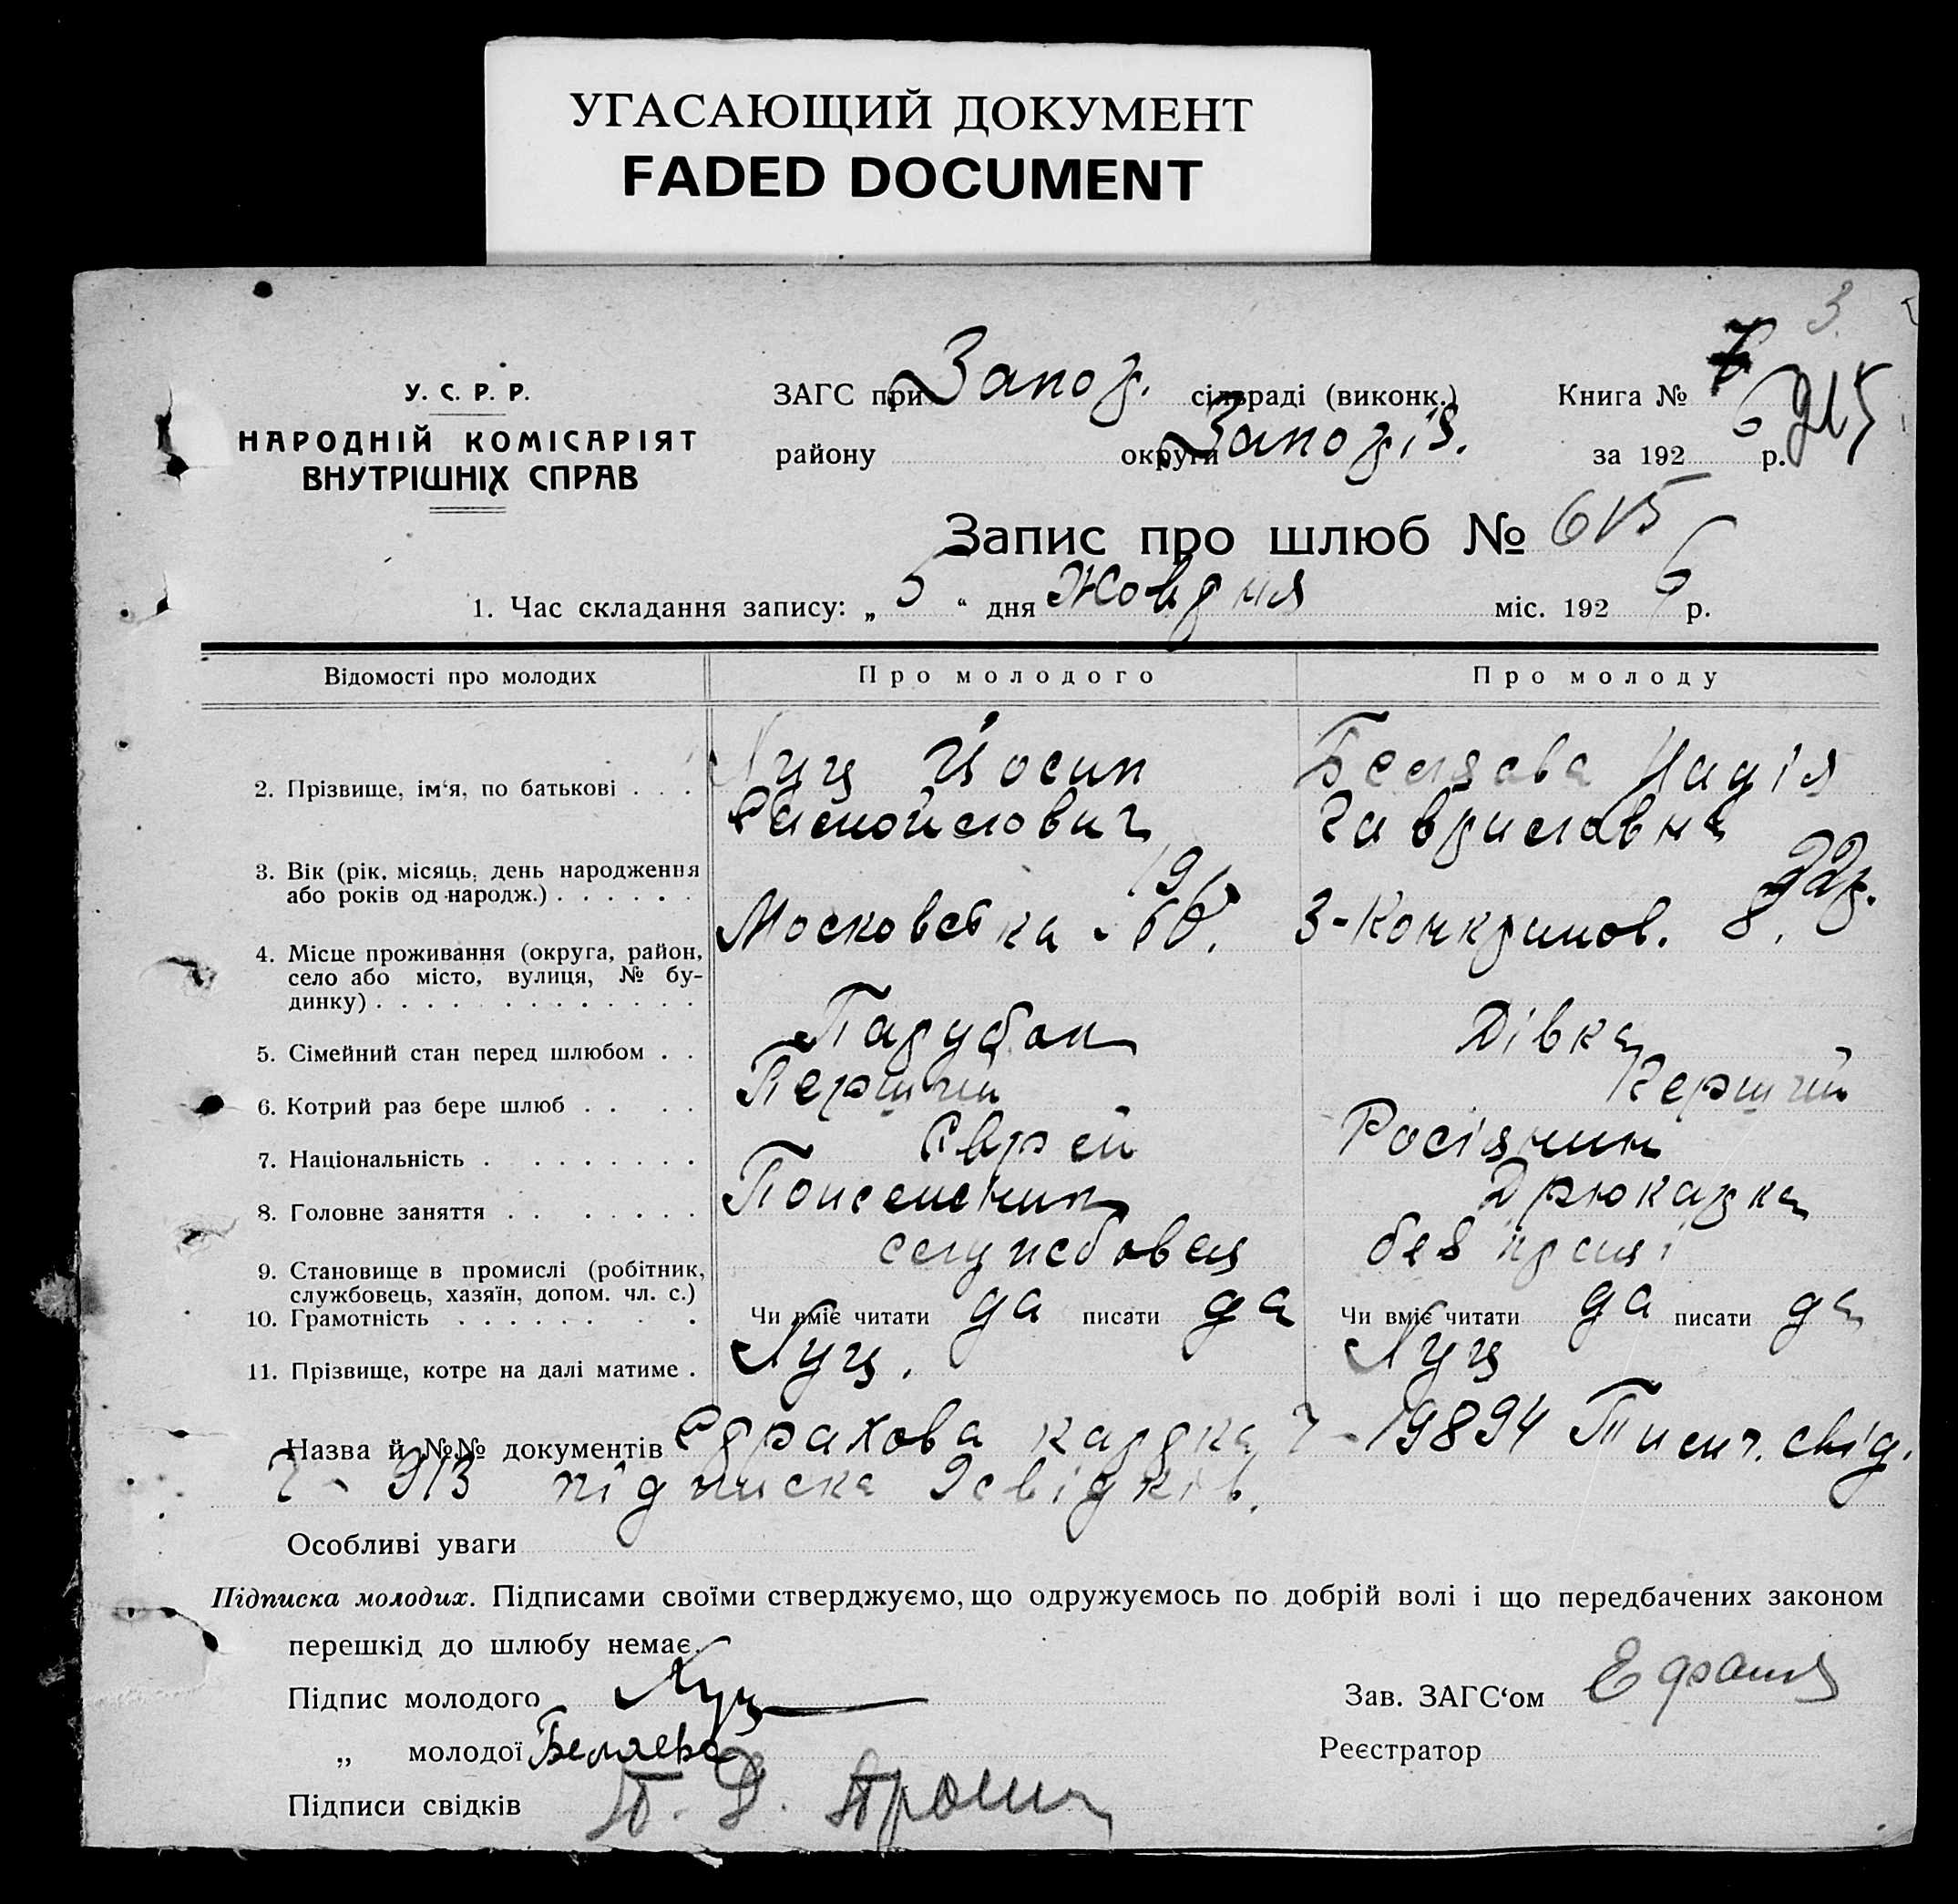 УГАСАЮЩИЙ ДОКУМЕНТ
FADED DOCUMENT
3
У. С. Р. Р.
НАРОДНІЙ КОМІСАРІЯТ
ВНУТРІШНІХ СПРАВ
ЗАГС при Запор. сільраді (виконк.) Книга №
району округи Запоріз. за 192 6 р.
Запис про шлюб № 615
1. Час складання запису: „ 5 “ дня Жовтня міс. 192 6 р.
Відомості про молодих Про молодого Про молоду
2. Прізвище, ім‘я, по батькові . . . Луц Йосип Беляєва Надія
Самойлович Гавриловна
3. Вік (рік, місяць, день народження
або років од народж.) . . . . . . 22 р.
4. Місце проживання (округа, район, Московська 8.
село або місто, вулиця, № бу-
динку) . . . . . . . . . . . . .
5. Сімейний стан перед шлюбом . . Парубок Дівка
6. Котрий раз бере шлюб . . . . Перший Перший
7. Національність . . . . . . . . Єврей Росіянин
8. Головне заняття . . . . . . . Друкарка
9. Становище в промислі (робітник, службовец без праці
службовець, хазяїн, допом. чл. с.)
10. Грамотність . . . . . . . . Чи вміє читати да писати да Чи вміє читати да писати да
11. Прізвище, котре на далі матиме . Луц. Луц
Назва й №№ документів Страхова картка Ч-19894 свід.
Ч- 913 підписка 2 свідків.
Особливі уваги
Підписка молодих. Підписами своїми стверджуємо, що одружуємось по добрій волі і що передбачених законом
перешкід до шлюбу немає.
Підпис молодого Луц Зав. ЗАГС‘ом
„ молодої Беляева Реєстратор
Підписи свідків